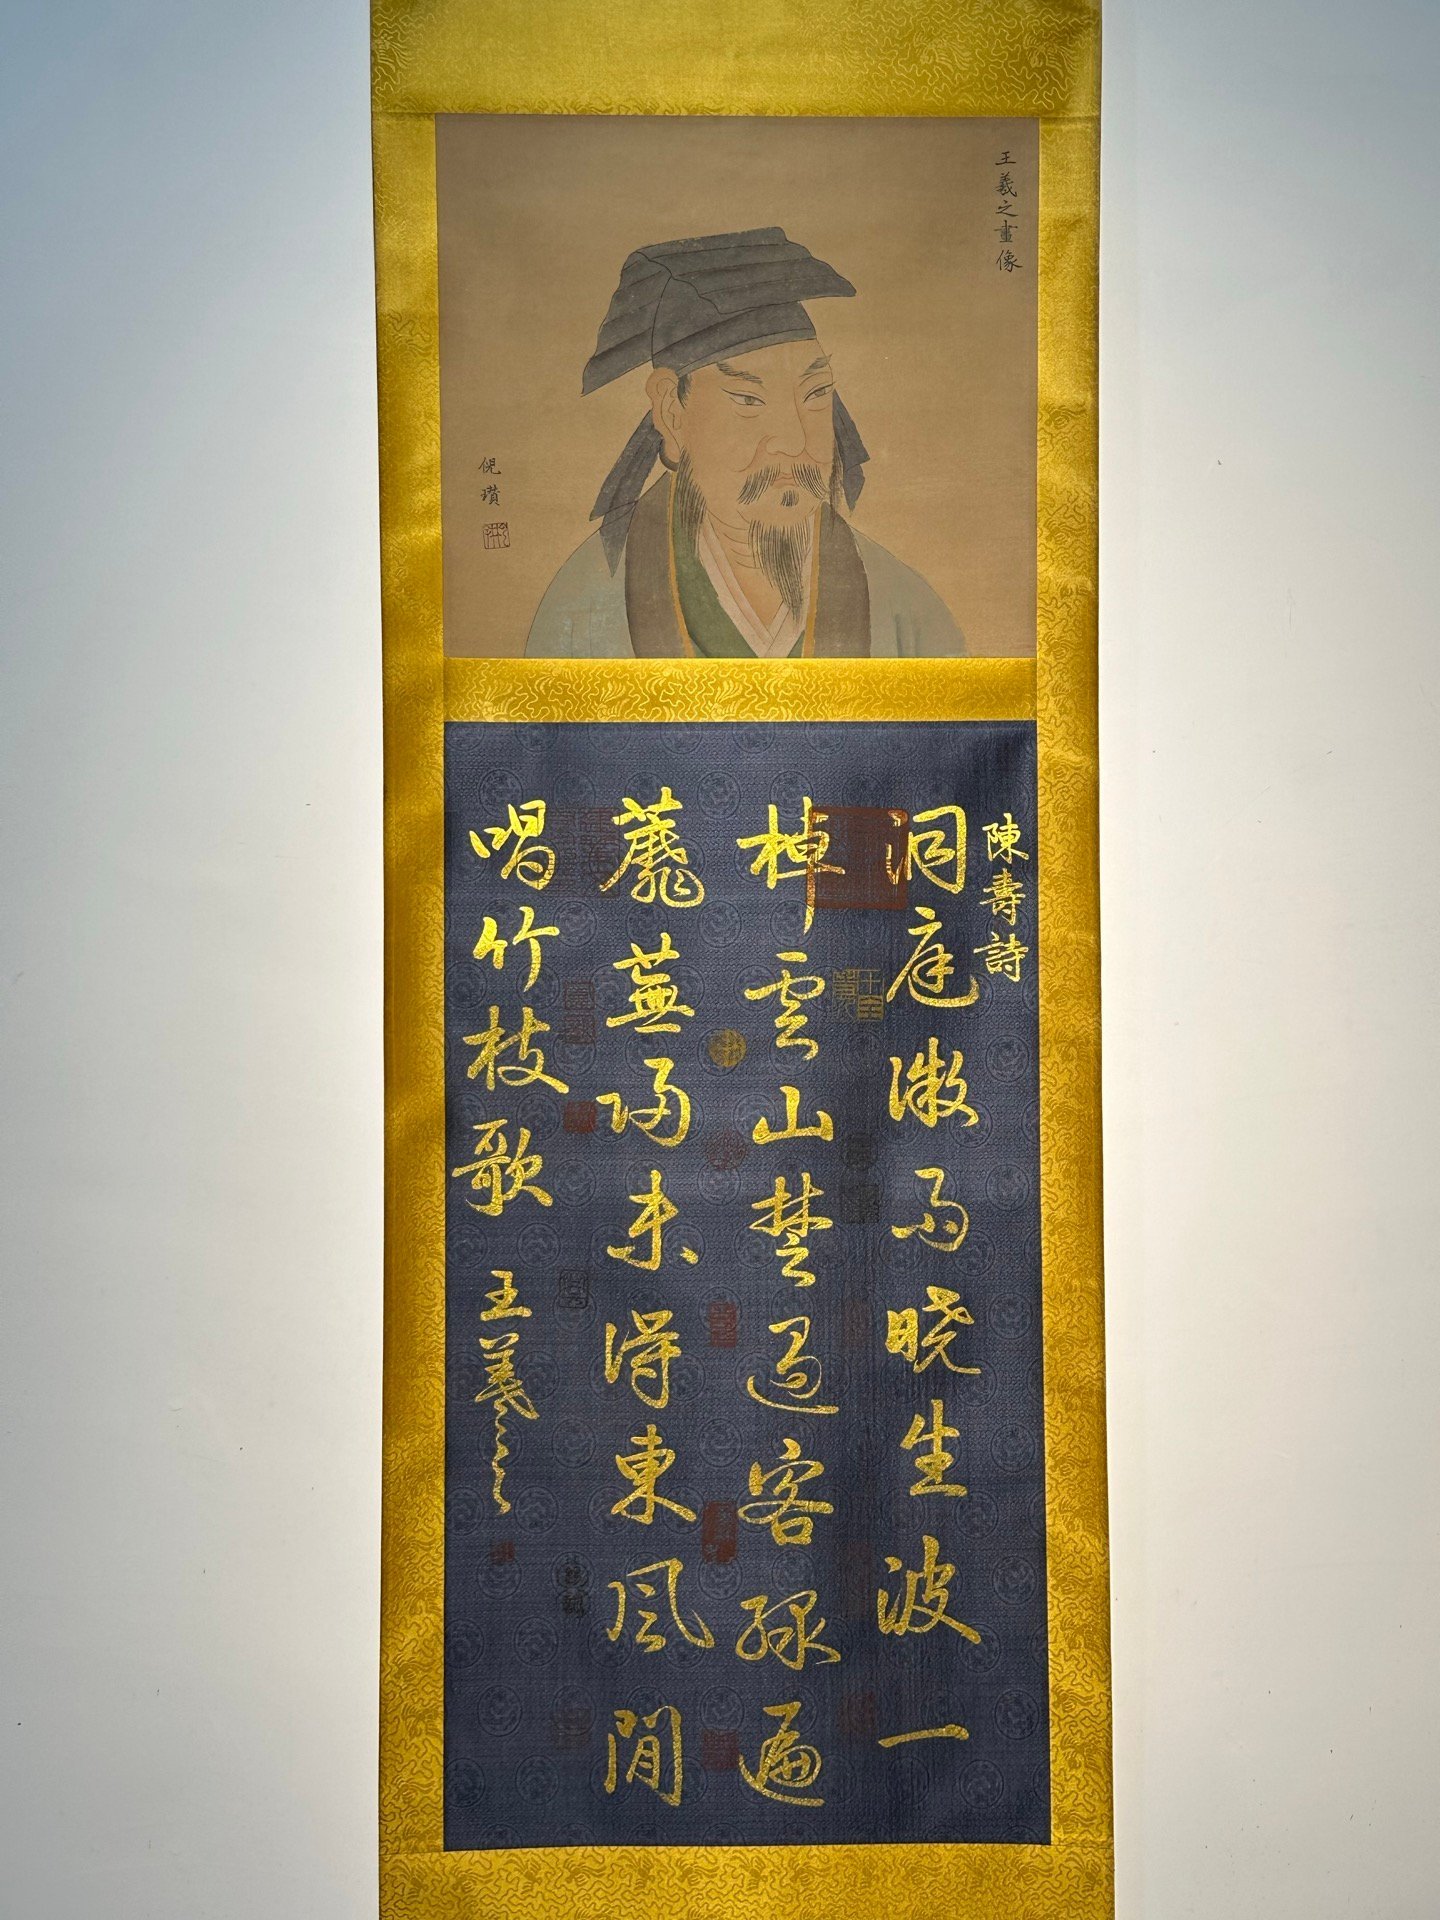 王羲之畫像
倪瓚
陳壽詩
洞庭微雨曉生波一
棹雲山楚過客綠遍
蘼蕪歸未得東風閒
唱竹枝歌
王羲之